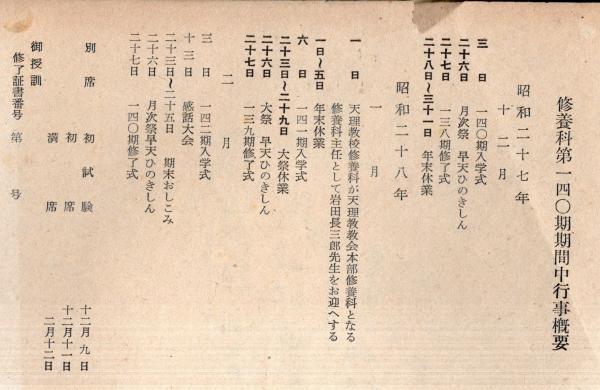 修養科第一四〇期期間中行事概要
昭和二十七年
十二月
三日 一四〇期入学式
二十六日 月次祭 早天ひのきしん
二十七日 一三八期修了式
二十八日~三十一日 年末休業
昭和二十八年
一月
一日 天理教校修養科が天理教教会本部修養科となる
修養科主任として岩田長三郎先生をお迎へする
一日~五日 年末休業
六日 一四一期入学式
二十三日~二十九日 大祭休業
二十六日 大祭 早天ひのきしん
二十七日 一三九期修了式
二月
三日 一四二期入学式
十三日 感話大会
二十三日~二十五日 期末おしこみ
二十六日 月次祭早天ひのきしん
二十七日 一四〇期修了式
別席 初試験 十二月九日
初席 十二月十一日
満席 二月十二日
御授訓
修了証書番号 第 号